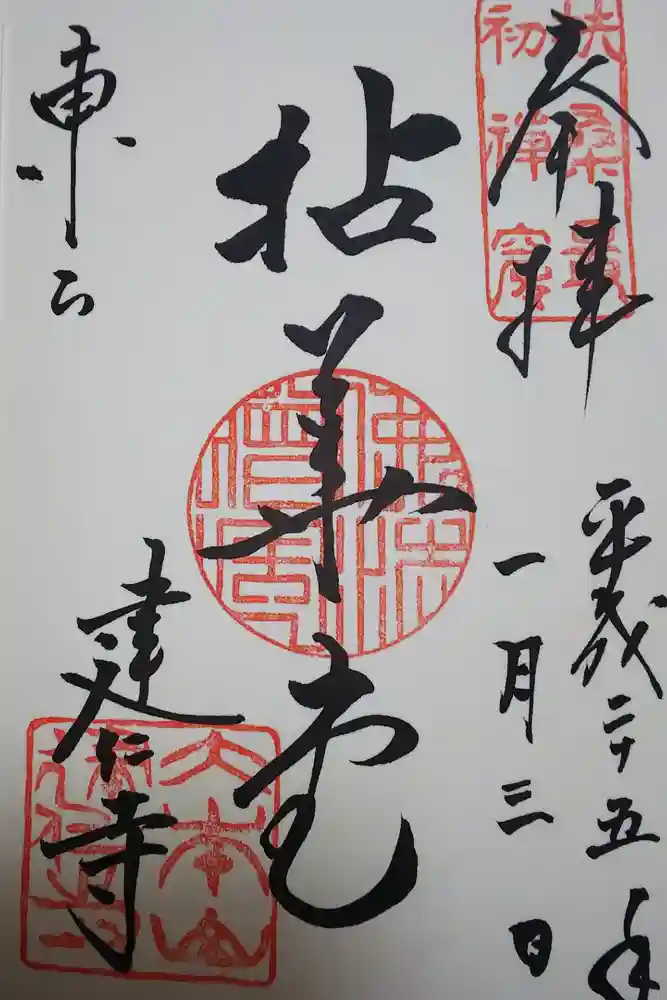 奉拝
扶桑最
初禅窟
平成二十五年
一月三日
拈華堂
東山
建仁寺
大本山
建仁寺